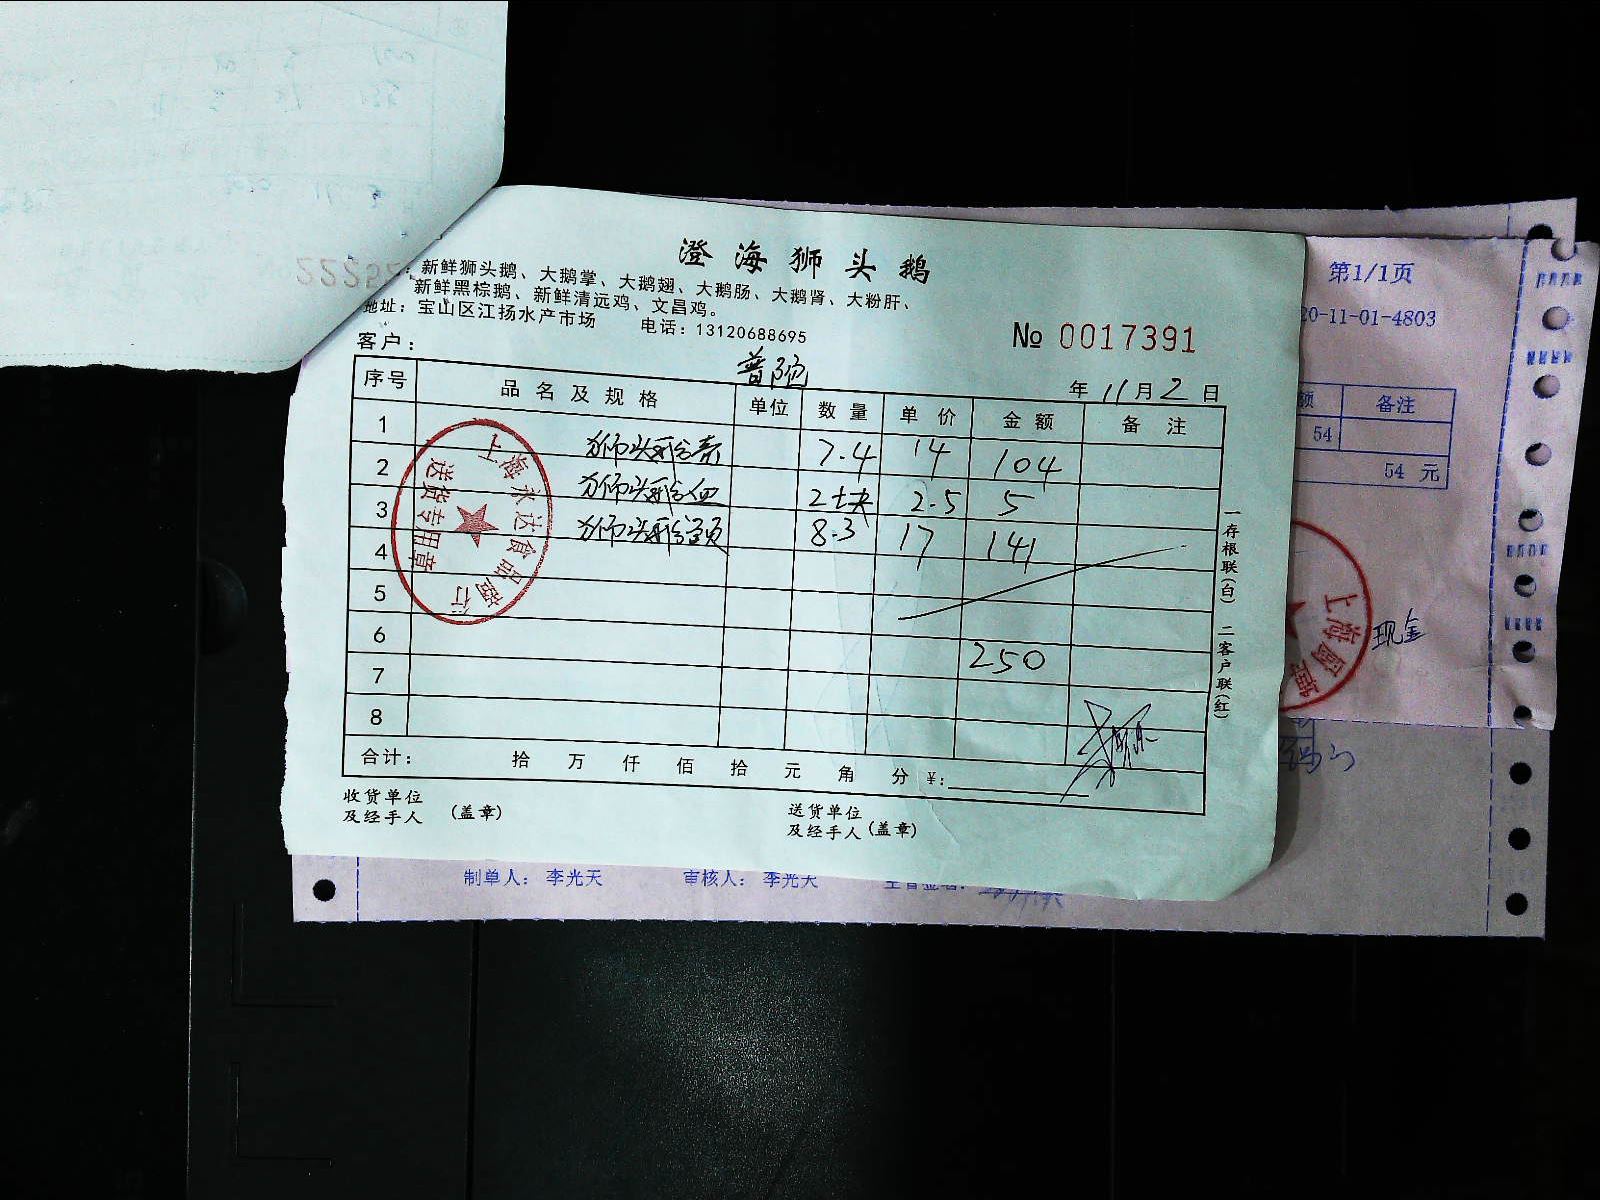 澄海狮头鹅
新鲜狮头鹅、大鹅掌、大鹅翅、大鹅肠、大鹅肾、大粉肝、
新鲜黑棕鹅、新鲜清远鸡、文昌鸡。
地址：宝山区江扬水产市场 电话：13120688695
№ 0017391
客户：
普陀
年 11 月 2 日
序号 品名及规格 单位 数量 单价 金额 备注
1 狮头鹅 7.4 14 104
2 狮头鹅血 2块 2.5 5
3 狮头鹅头 8.3 17 141
4
5
6 250
7
8
合计： 拾 万 仟 佰 拾 元 角 分 ¥：
收货单位
及经手人 (盖章)
送货单位
及经手人 (盖章)
一存根联(白) 二客户联(红)
上海永达食品商行
送货专用章
第1/1页
20-11-01-4803
额 备注
54
54 元
现金
制单人： 李光天 审核人： 李光天